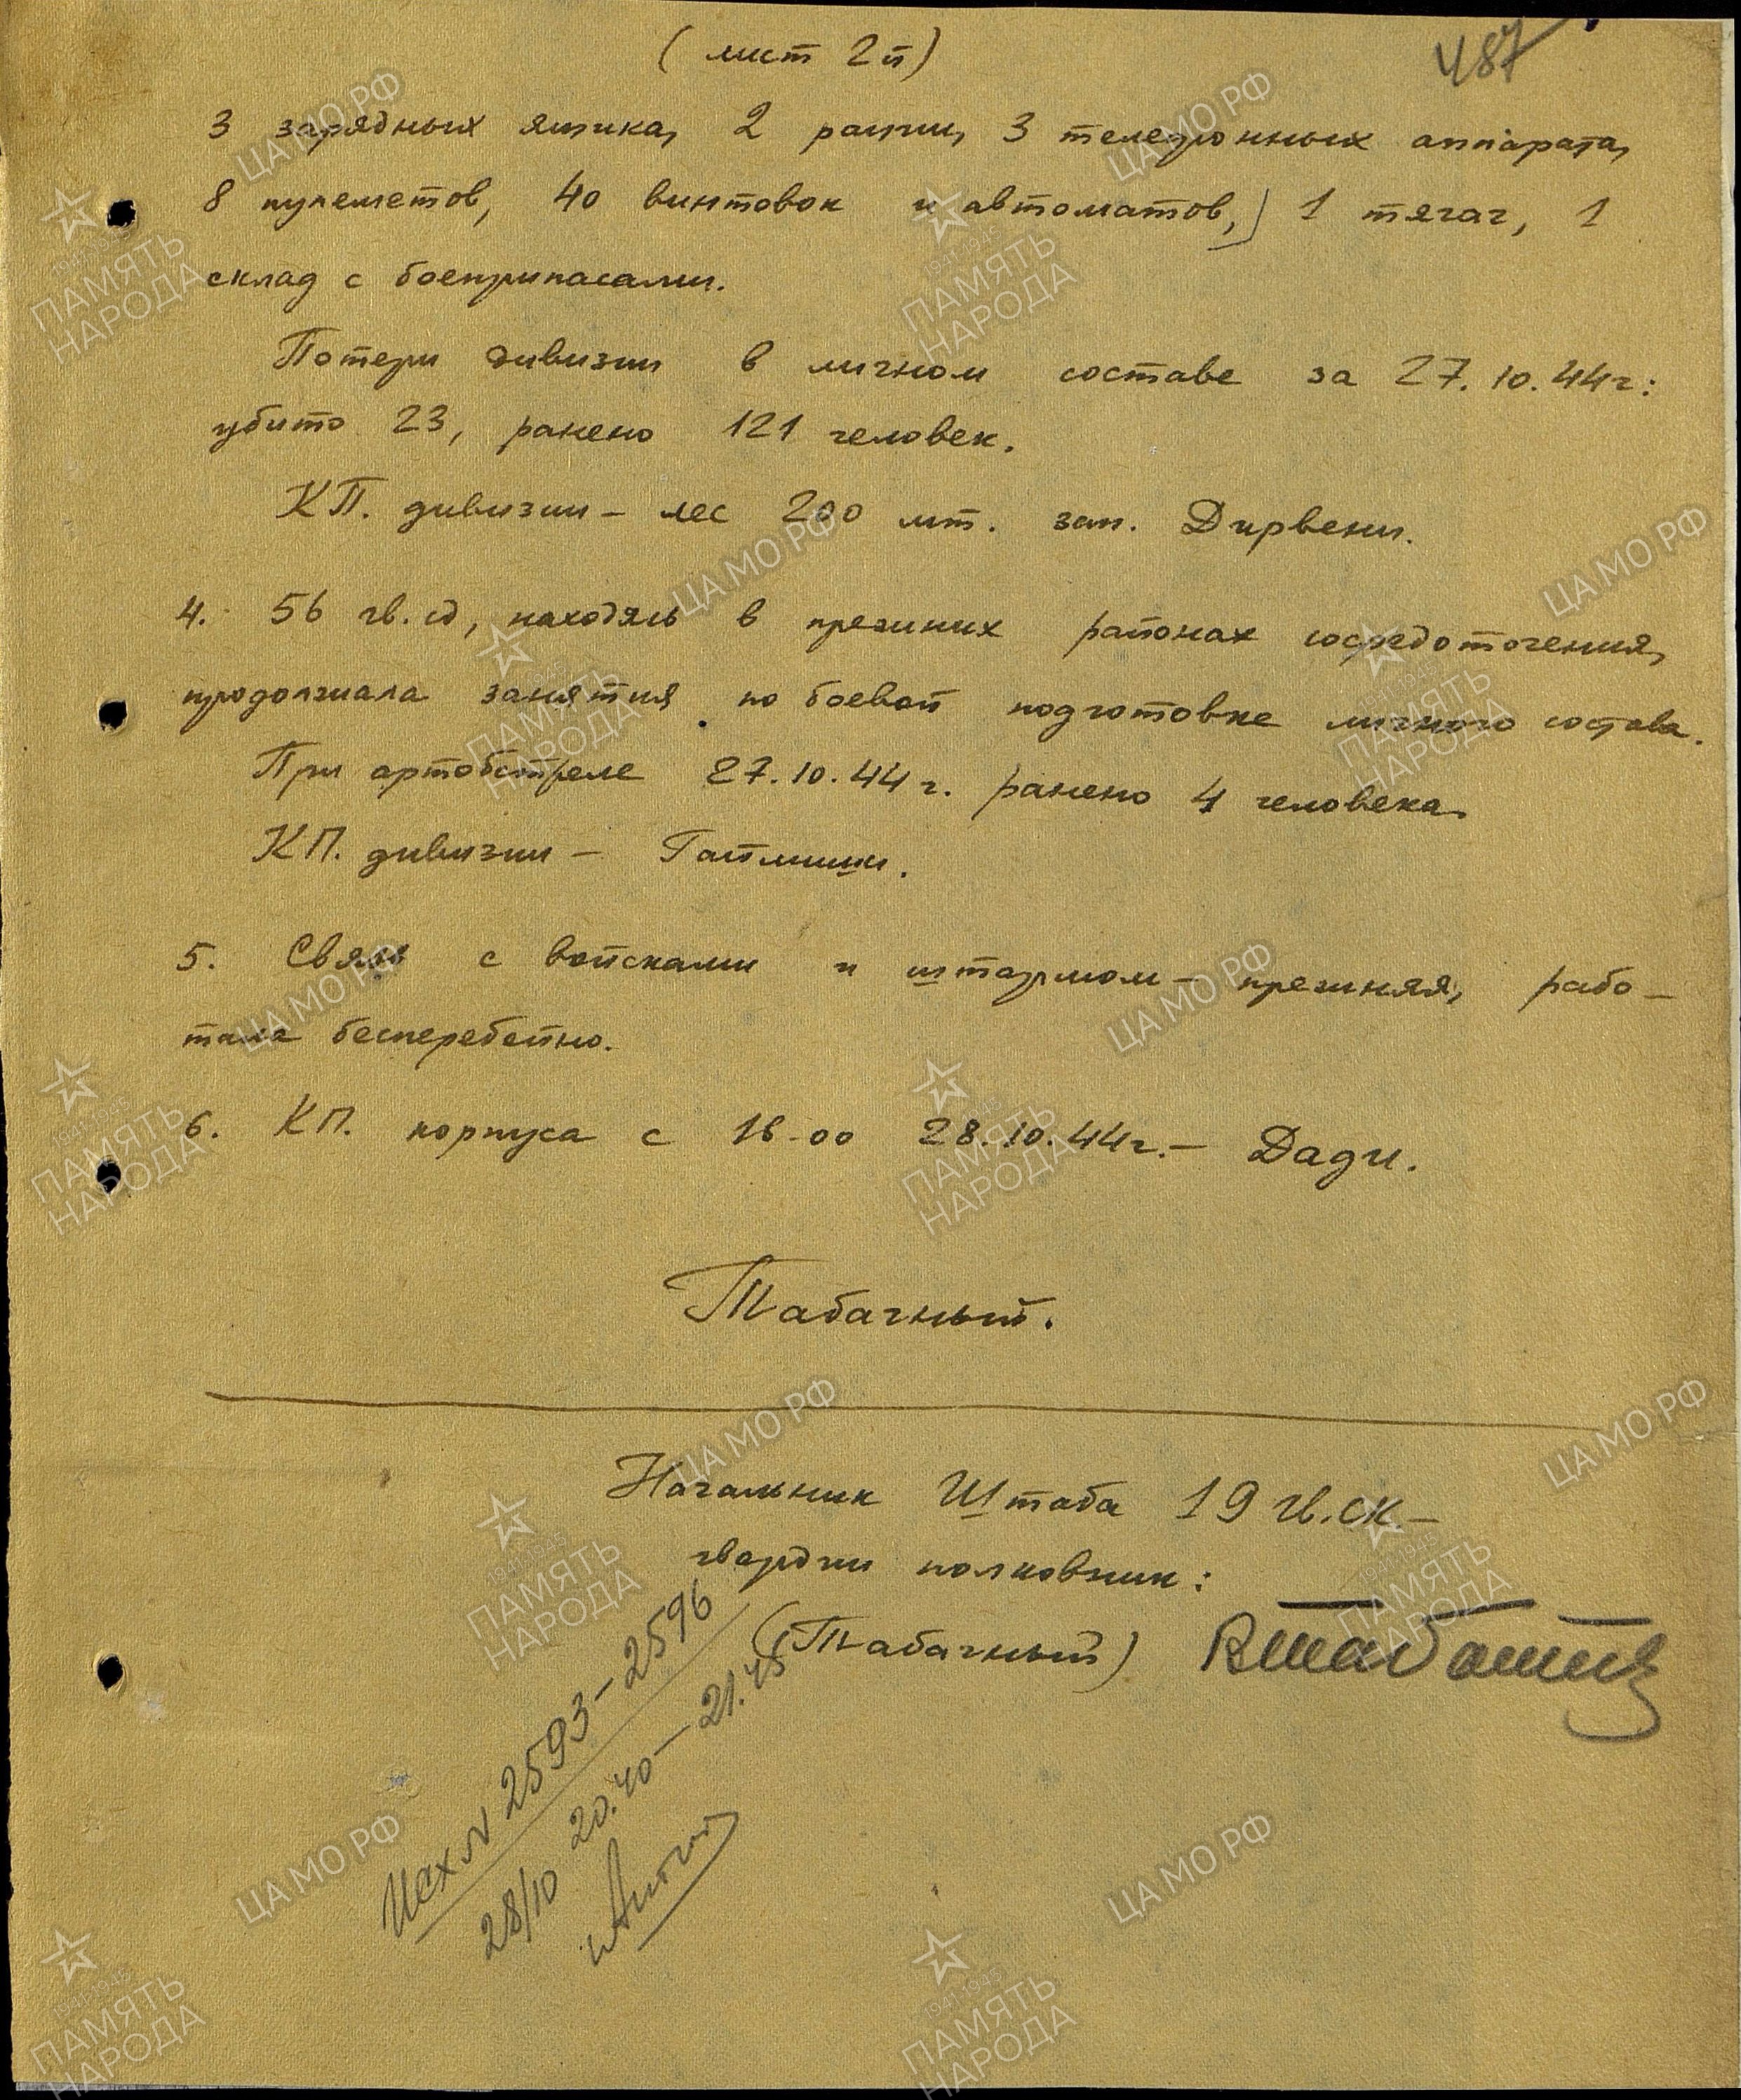 (лист 2й)
487
3 зарядных ящика, 2 рации, 3 телефонных аппарата,
8 пулеметов, 40 винтовок и автоматов,) 1 тягач, 1
склад с боеприпасами.
Потери дивизии в личном составе за 27.10.44г:
убито 23, ранено 121 человек.
КП. дивизии – лес 200 мт. зап. Дирвени.
4. 56 гв.сд, находясь в прежних районах сосредоточения,
продолжала занятия по боевой подготовке личного состава.
При артобстреле 27.10.44г. ранено 4 человека.
КП. дивизии – Гайлиши.
5. Связь с войсками и штармом – прежняя, рабо-
тала бесперебойно.
6. КП. корпуса с 16-00 28.10.44г. – Дади.
Табачный.
Начальник Штаба 19 гв.ск. –
гвардии полковник:
(Табачный)
Исх N 2593–2596
28/10 20.40–21.45
ЦАМО РФ
1941-1945
ПАМЯТЬ
НАРОДА